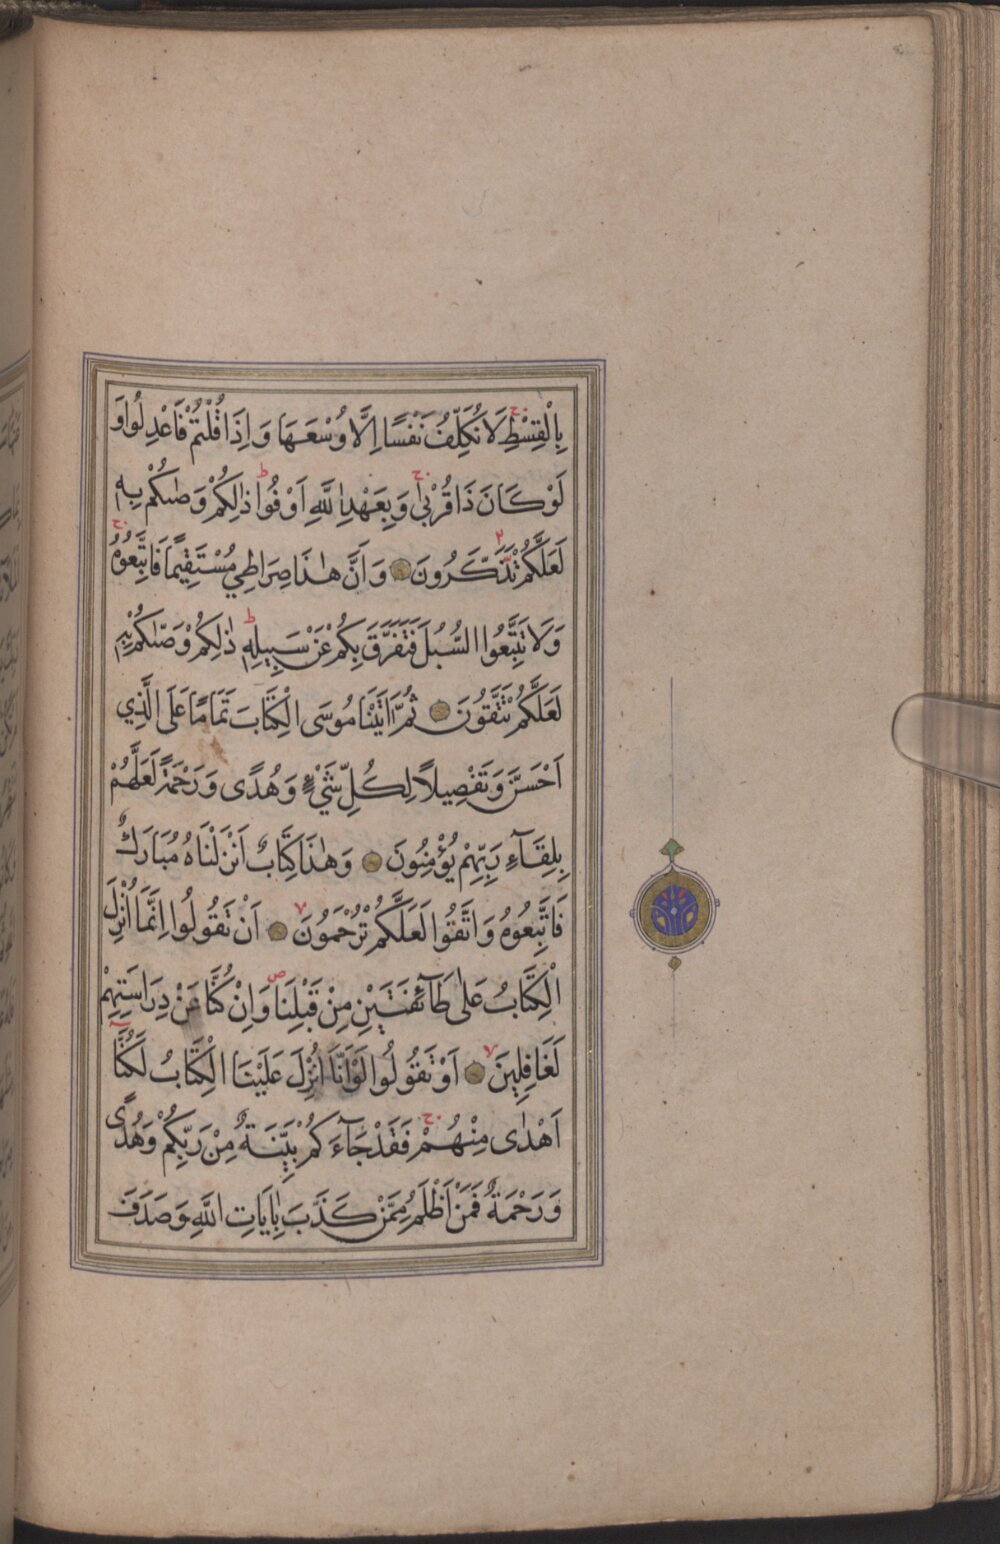 بِالْقِسْطِ لَا نُكَلِّفُ نَفْسًا اِلَّا وُسْعَهَا وَاِذَا قُلْتُمْ فَاعْدِلُوا وَ
لَوْ كَانَ ذَا قُرْبٰى وَبِعَهْدِ اللّٰهِ اَوْفُوا ذٰلِكُمْ وَصّٰىكُمْ بِهٖ
لَعَلَّكُمْ تَذَكَّرُونَ وَاَنَّ هٰذَا صِرَاطِي مُسْتَقِيمًا فَاتَّبِعُوهُ
وَلَا تَتَّبِعُوا السُّبُلَ فَتَفَرَّقَ بِكُمْ عَنْ سَبِيلِهٖ ذٰلِكُمْ وَصّٰىكُمْ بِهٖ
لَعَلَّكُمْ تَتَّقُونَ ثُمَّ اٰتَيْنَا مُوسَى الْكِتَابَ تَمَامًا عَلَى الَّذِي
اَحْسَنَ وَتَفْصِيلًا لِكُلِّ شَيْءٍ وَهُدًى وَرَحْمَةً لَعَلَّهُمْ
بِلِقَآءِ رَبِّهِمْ يُؤْمِنُونَ وَهٰذَا كِتَابٌ اَنْزَلْنَاهُ مُبَارَكٌ
فَاتَّبِعُوهُ وَاتَّقُوا لَعَلَّكُمْ تُرْحَمُونَ اَنْ تَقُولُوا اِنَّمَا اُنْزِلَ
الْكِتَابُ عَلٰى طَآئِفَتَيْنِ مِنْ قَبْلِنَا وَاِنْ كُنَّا عَنْ دِرَاسَتِهِمْ
لَغَافِلِينَ اَوْ تَقُولُوا لَوْ اَنَّا اُنْزِلَ عَلَيْنَا الْكِتَابُ لَكُنَّا
اَهْدٰى مِنْهُمْ فَقَدْ جَآءَكُمْ بَيِّنَةٌ مِنْ رَبِّكُمْ وَهُدًى
وَرَحْمَةٌ فَمَنْ اَظْلَمُ مِمَّنْ كَذَّبَ بِاٰيَاتِ اللّٰهِ وَصَدَفَ